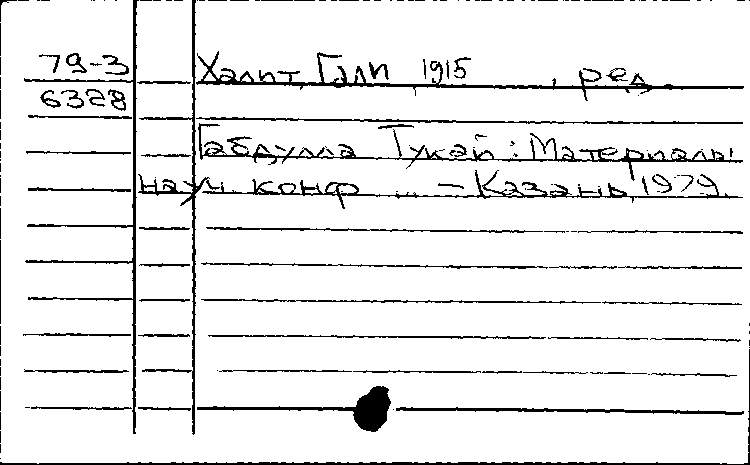 79-3 Халит, Гали, 1915 , ред.
6328
Габдулла Тукай: Материалы
науч. конф ... – Казань, 1979.